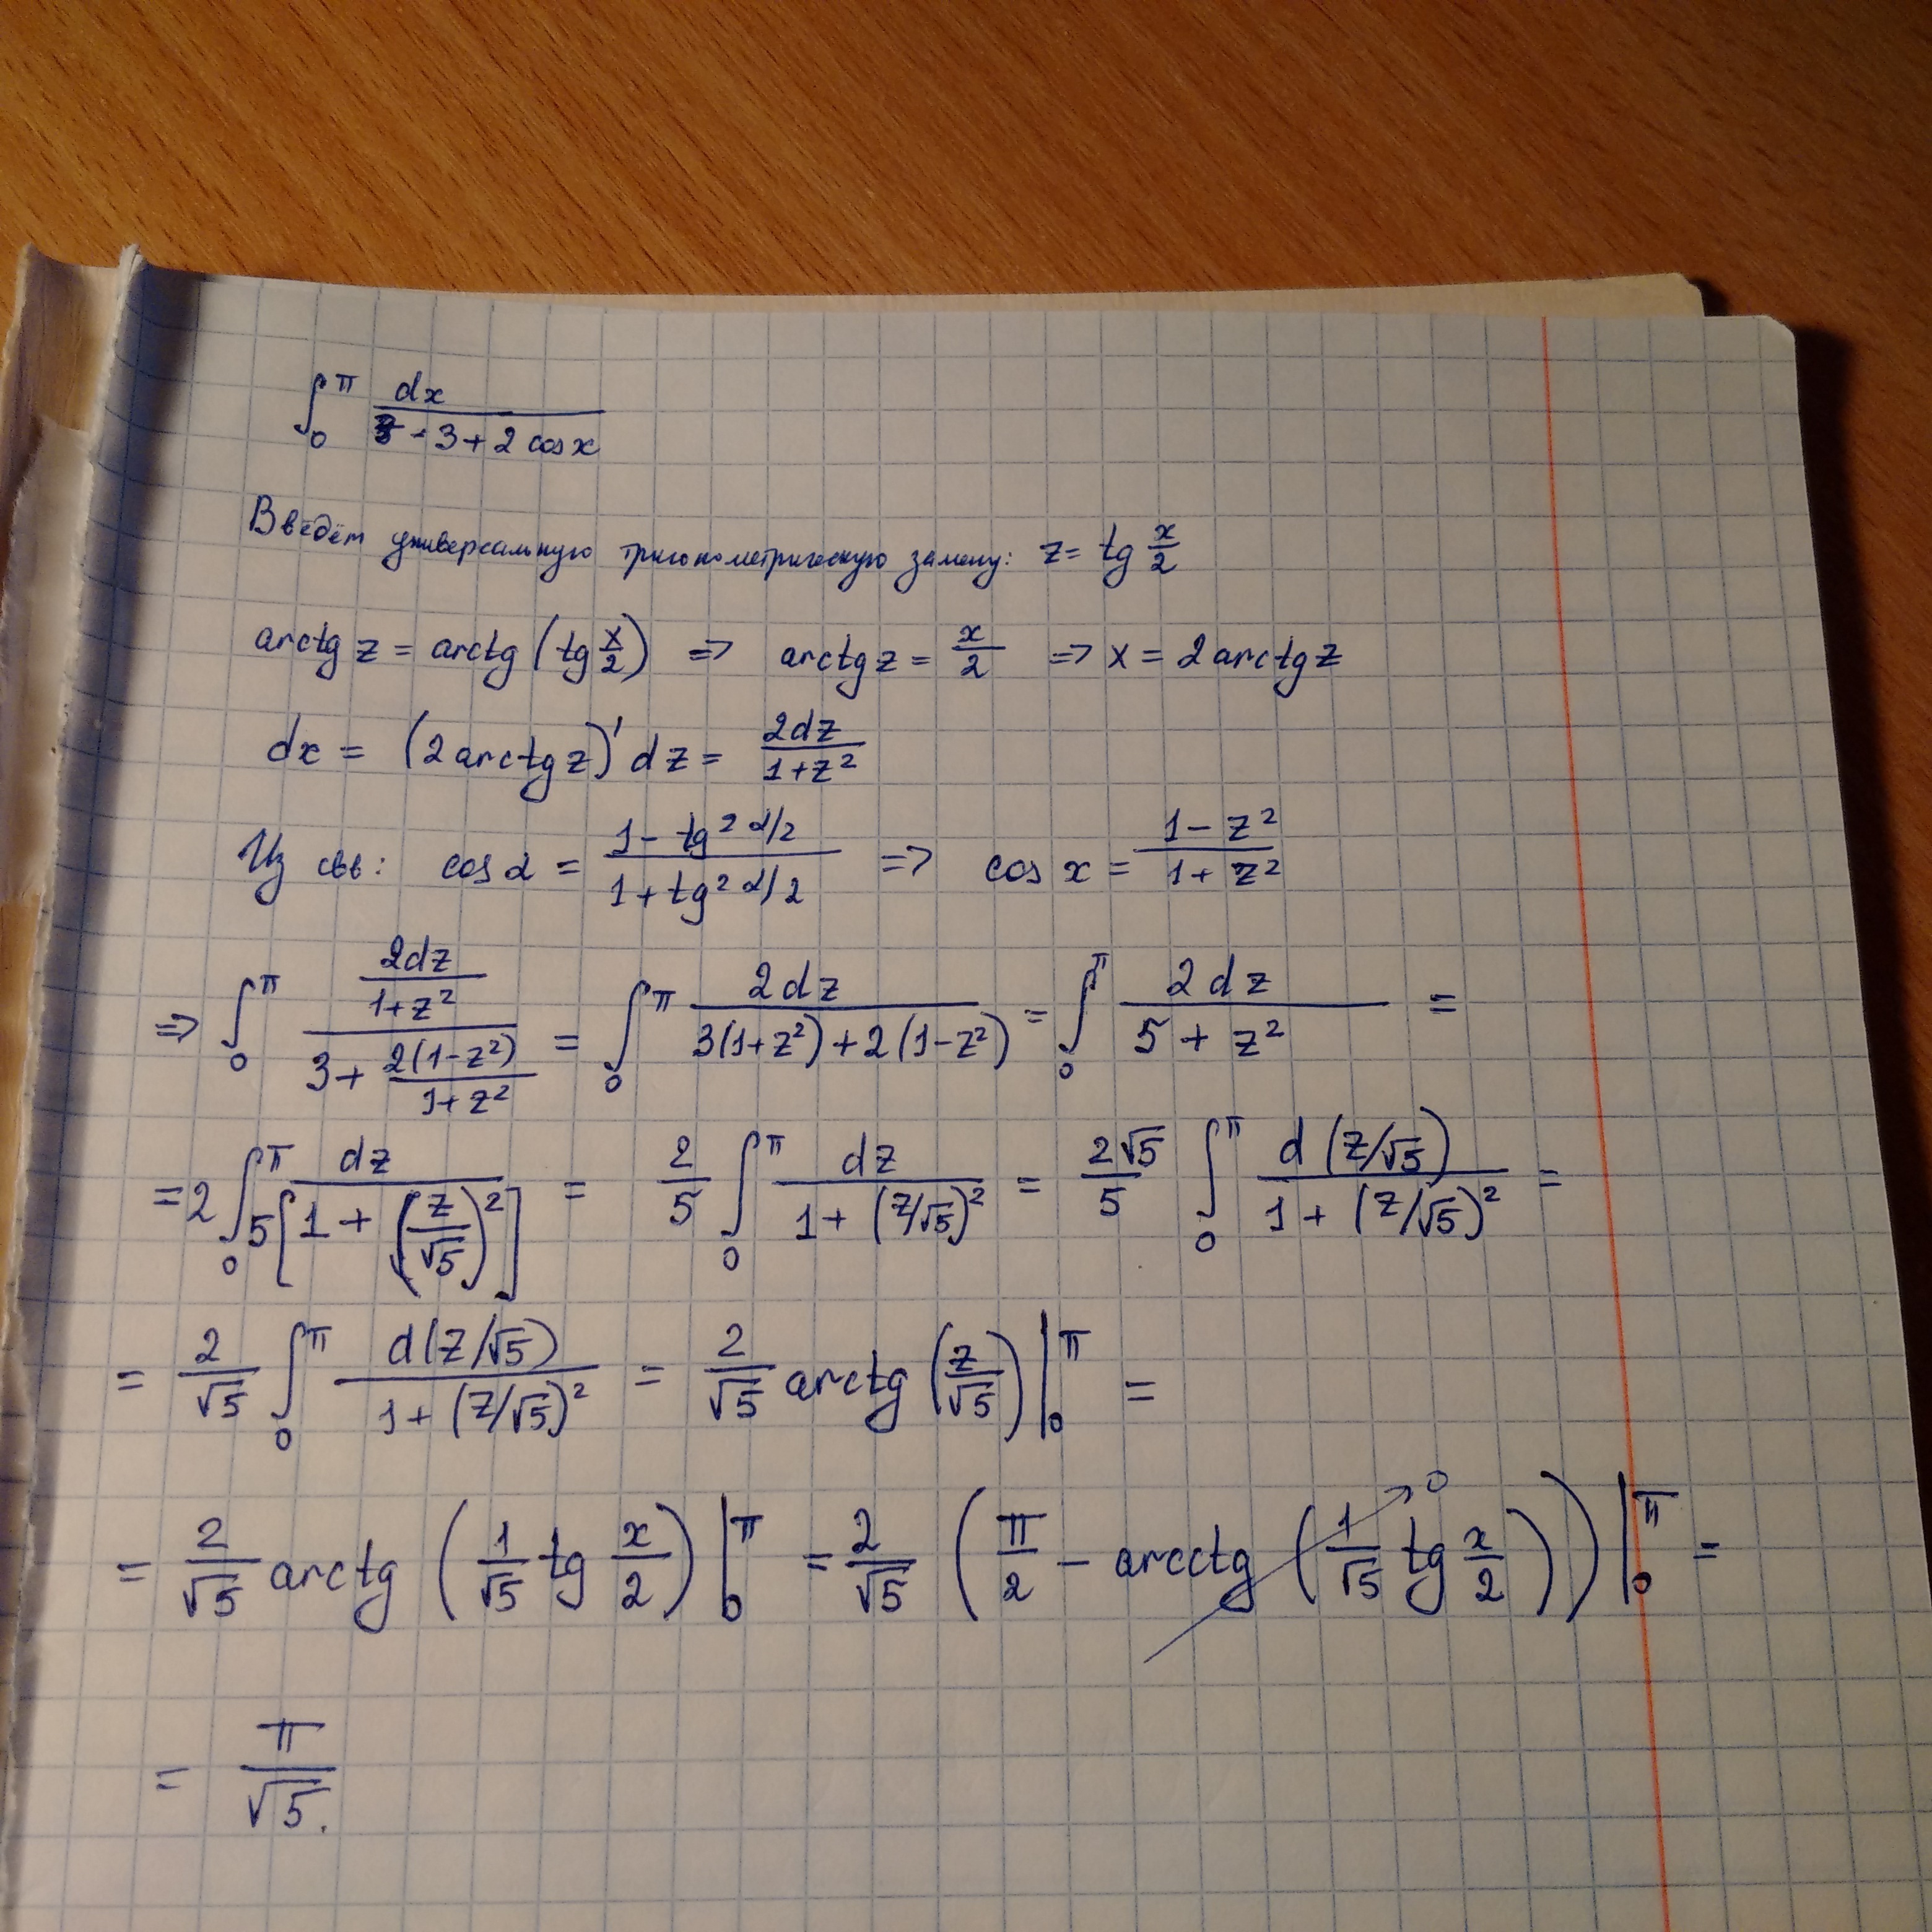 ∫₀^π dx / (3 - 3 + 2 cos x)
Введём универсальную тригонометрическую замену: z = tg x/2
arctg z = arctg (tg x/2) => arctg z = x/2 => x = 2 arctg z
dx = (2 arctg z)' dz = 2dz / (1+z²)
Из свв: cos α = (1 - tg² α/2) / (1 + tg² α/2) => cos x = (1 - z²) / (1 + z²)
=> ∫₀^π (2dz / (1+z²)) / (3 + 2(1-z²) / (1+z²)) = ∫₀^π 2dz / (3(1+z²) + 2(1-z²)) = ∫₀^π 2dz / (5 + z²) =
= 2 ∫₀^π dz / (5[1 + (z/√5)²]) = 2/5 ∫₀^π dz / (1 + (z/√5)²) = 2√5/5 ∫₀^π d(z/√5) / (1 + (z/√5)²) =
= 2/√5 ∫₀^π d(z/√5) / (1 + (z/√5)²) = 2/√5 arctg (z/√5) |₀^π =
= 2/√5 arctg (1/√5 tg x/2) |₀^π = 2/√5 (π/2 - arcctg (1/√5 tg x/2)→0) |₀^π =
= π/√5.